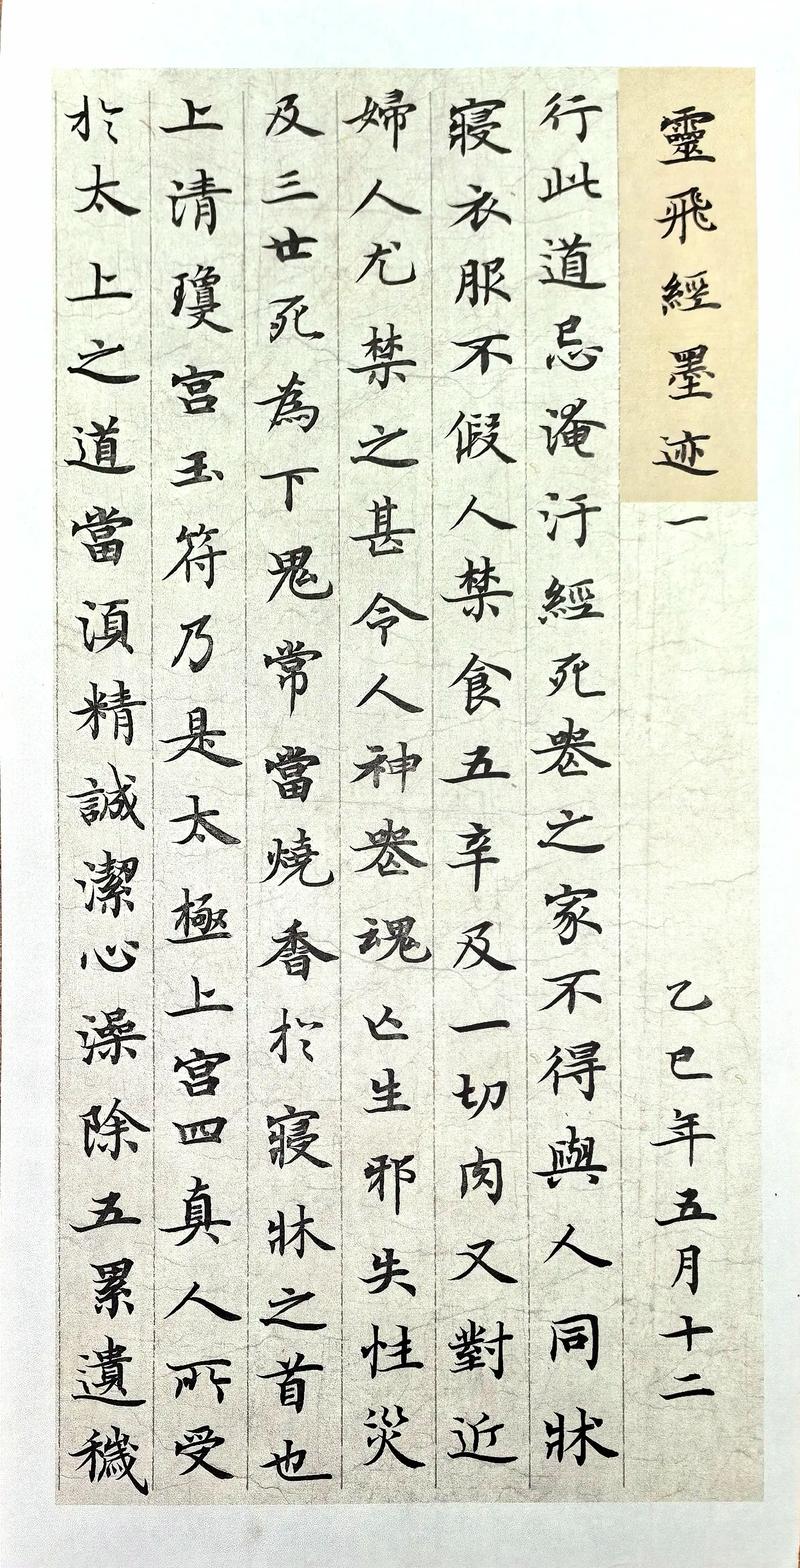 靈飛經墨迹一
乙巳年五月十二
行此道忌淹汙經死喪之家不得與人同牀
寢衣服不假人禁食五辛及一切肉又對近
婦人尤禁之甚令人神喪魂亡生邪失性災
及三世死為下鬼常當燒香於寢牀之首也
上清瓊宮玉符乃是太極上宮四真人所受
於太上之道當須精誠潔心澡除五累遺穢